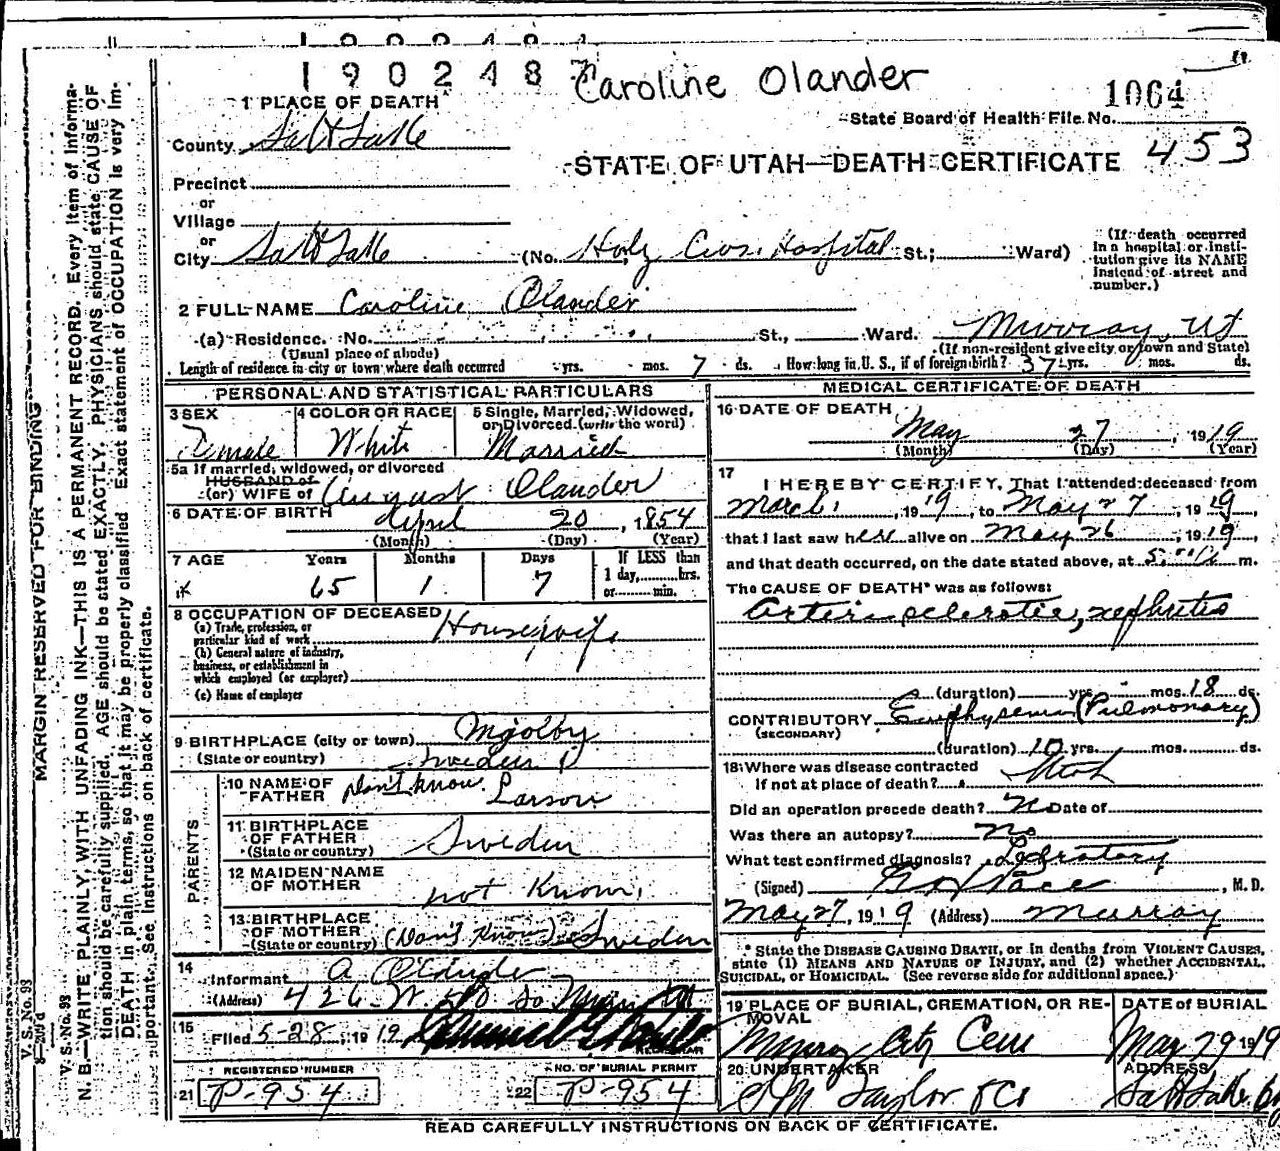 1902484
190248
Caroline Olander
1064
State Board of Health File No.
453
STATE OF UTAH—DEATH CERTIFICATE
1 PLACE OF DEATH
County Salt Lake
Precinct
or
Village
or
City Salt Lake (No. Holy Cross Hospital St.; Ward)
(If death occurred in a hospital or insti-
tution give its NAME
instead of street and
number.)
2 FULL NAME Caroline Olander
(a) Residence. No. St., Ward. Murray, Ut
(Usual place of abode) (If non-resident give city or town and State)
Length of residence in city or town where death occurred yrs. mos. 7 ds. How long in U. S., if of foreign birth? 37 yrs. mos. ds.
PERSONAL AND STATISTICAL PARTICULARS
3 SEX Female
4 COLOR OR RACE White
5 Single, Married, Widowed,
or Divorced (write the word)
Married
5a If married, widowed, or divorced
HUSBAND of
(or) WIFE of August Olander
6 DATE OF BIRTH April 20, 1854
(Month) (Day) (Year)
7 AGE Years Months Days If LESS than
1 day, hrs.
or min.
65 1 7
8 OCCUPATION OF DECEASED Housewife
(a) Trade, profession, or
particular kind of work
(b) General nature of industry,
business, or establishment in
which employed (or employer)
(c) Name of employer
9 BIRTHPLACE (city or town) Mjolby
(State or country) Sweden
PARENTS
10 NAME OF
FATHER Don't know. Larson
11 BIRTHPLACE
OF FATHER
(State or country) Sweden
12 MAIDEN NAME
OF MOTHER not Know,
13 BIRTHPLACE
OF MOTHER
(State or country) (Don't Know) Sweden
14 Informant A Olander
(Address) 426 W. So Murray Ut
15 Filed 5-28, 1919
REGISTRAR
REGISTERED NUMBER
21 P-954
NO. OF BURIAL PERMIT
22 P-954
MEDICAL CERTIFICATE OF DEATH
16 DATE OF DEATH May 27, 1919
(Month) (Day) (Year)
17 I HEREBY CERTIFY, That I attended deceased from
March 1, 1919, to May 27, 1919,
that I last saw her alive on May 26, 1919,
and that death occurred, on the date stated above, at 5 m.
The CAUSE OF DEATH* was as follows:
Arterio sclerotic, nephritis
(duration) yrs. mos. 18 ds.
CONTRIBUTORY Emphysema (Pulmonary)
(SECONDARY)
(duration) 10 yrs. mos. ds.
18 Where was disease contracted
if not at place of death? Utah
Did an operation precede death? No Date of
Was there an autopsy? No
What test confirmed diagnosis? Labratory
(Signed) , M. D.
May 27, 1919 (Address) Murray
* State the DISEASE CAUSING DEATH, or in deaths from VIOLENT CAUSES,
state (1) MEANS AND NATURE OF INJURY, and (2) whether ACCIDENTAL,
SUICIDAL, or HOMICIDAL. (See reverse side for additional space.)
19 PLACE OF BURIAL, CREMATION, OR RE-
MOVAL
Murray City Cem
DATE OF BURIAL
May 29 1919
20 UNDERTAKER
S M Taylor & Co
ADDRESS
Salt Lake City
READ CAREFULLY INSTRUCTIONS ON BACK OF CERTIFICATE.
MARGIN RESERVED FOR BINDING
V. S. No. 93
V. S. No. 93
N. B.—WRITE PLAINLY, WITH UNFADING INK—THIS IS A PERMANENT RECORD. Every item of informa-
tion should be carefully supplied. AGE should be stated EXACTLY. PHYSICIANS should state CAUSE OF
DEATH in plain terms, so that it may be properly classified. Exact statement of OCCUPATION is very im-
portant. See instructions on back of certificate.